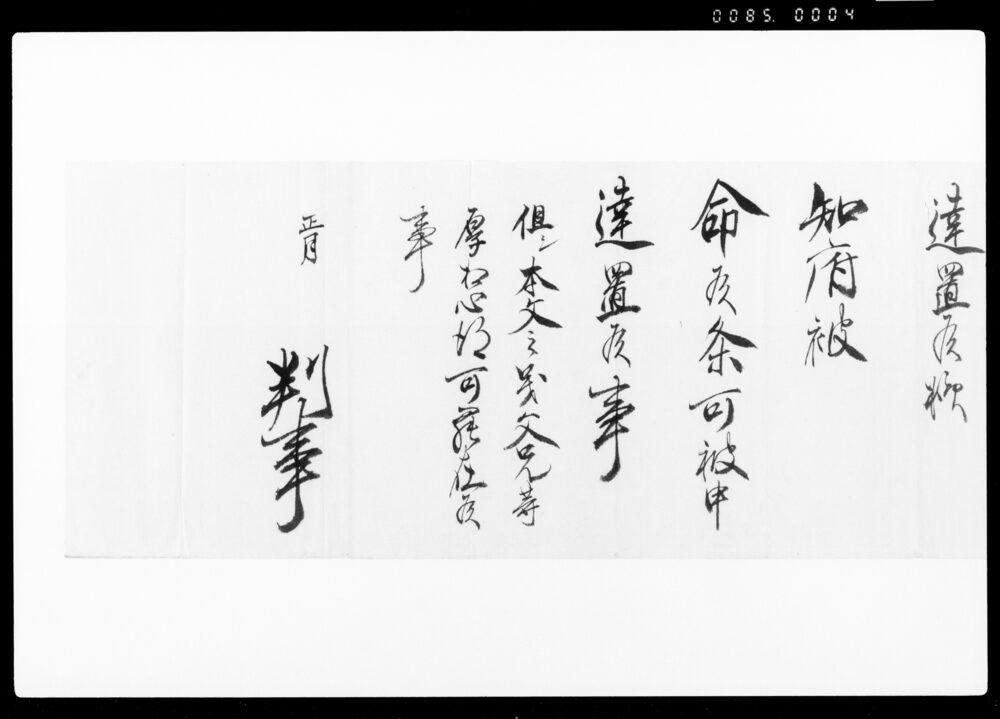 0085. 0004
達置候様
知府被
命候条可被申
達置候事
但シ本文之義父兄等
厚相心得可罷在候
事
正月
判事